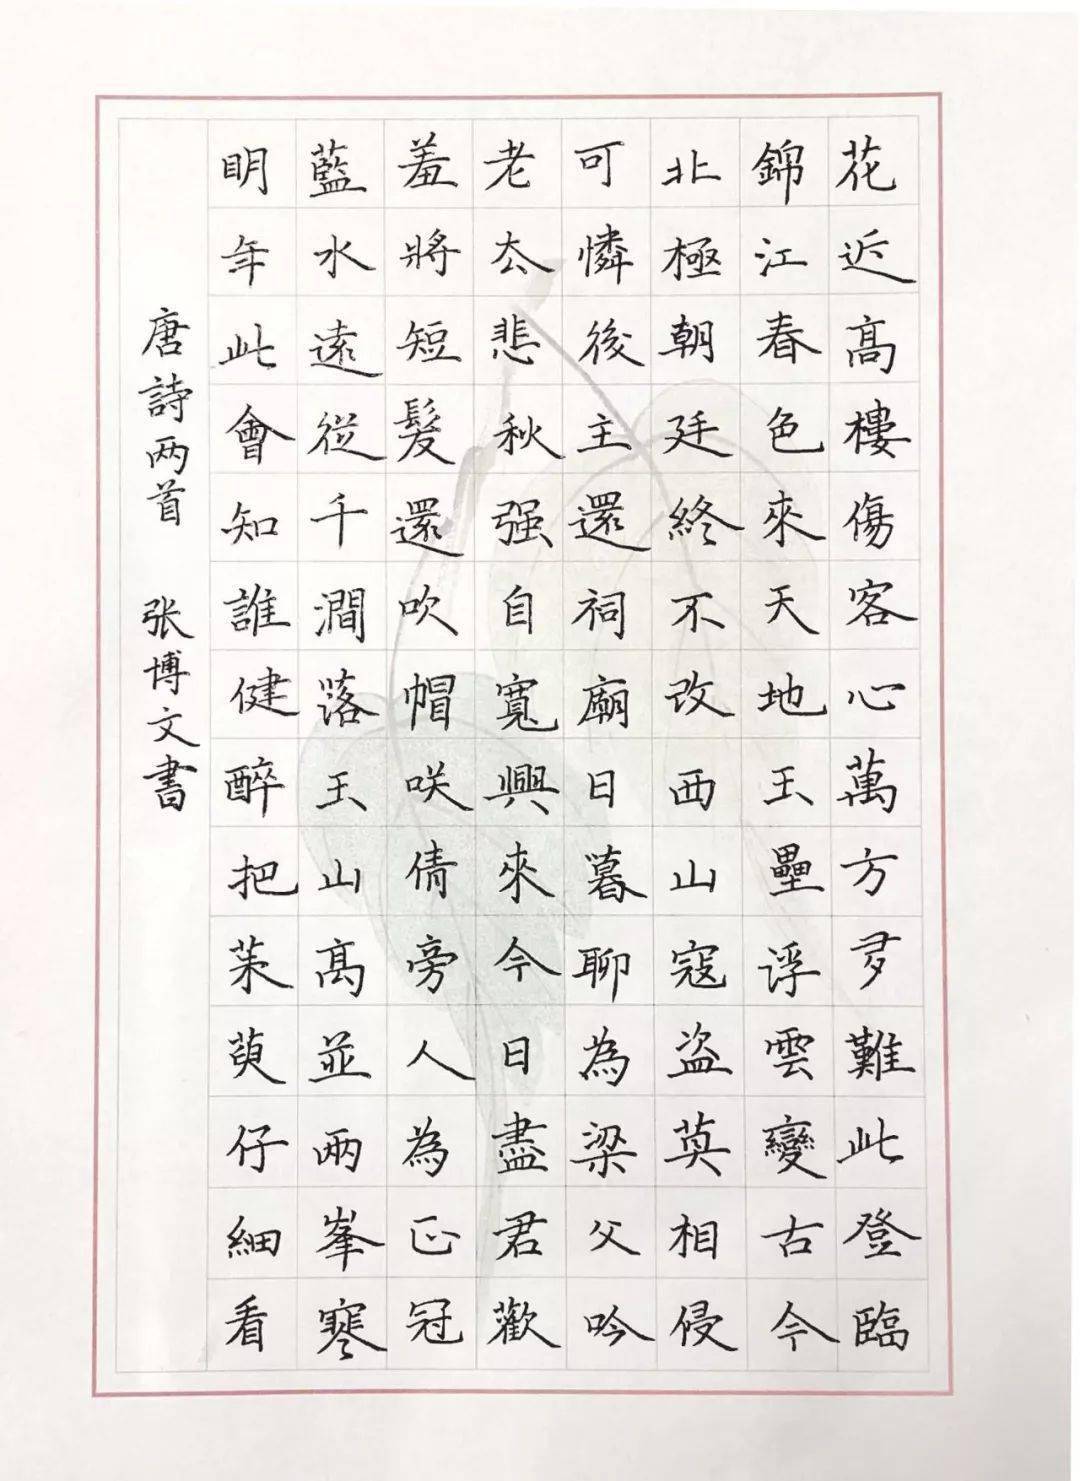 花近高樓傷客心萬方多難此登臨
錦江春色來天地玉壘浮雲變古今
北極朝廷終不改西山寇盗莫相侵
可憐後主還祠廟日暮聊為梁父吟
老去悲秋强自寬興來今日盡君歡
羞將短髮還吹帽咲倩旁人為正冠
藍水遠從千澗落玉山高並兩峯寒
明年此會知誰健醉把茱萸仔細看
唐詩两首 张博文書